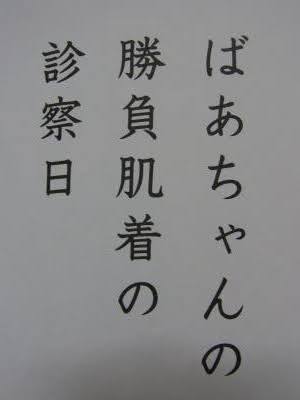 ばあちゃんの
勝負肌着の
診察日